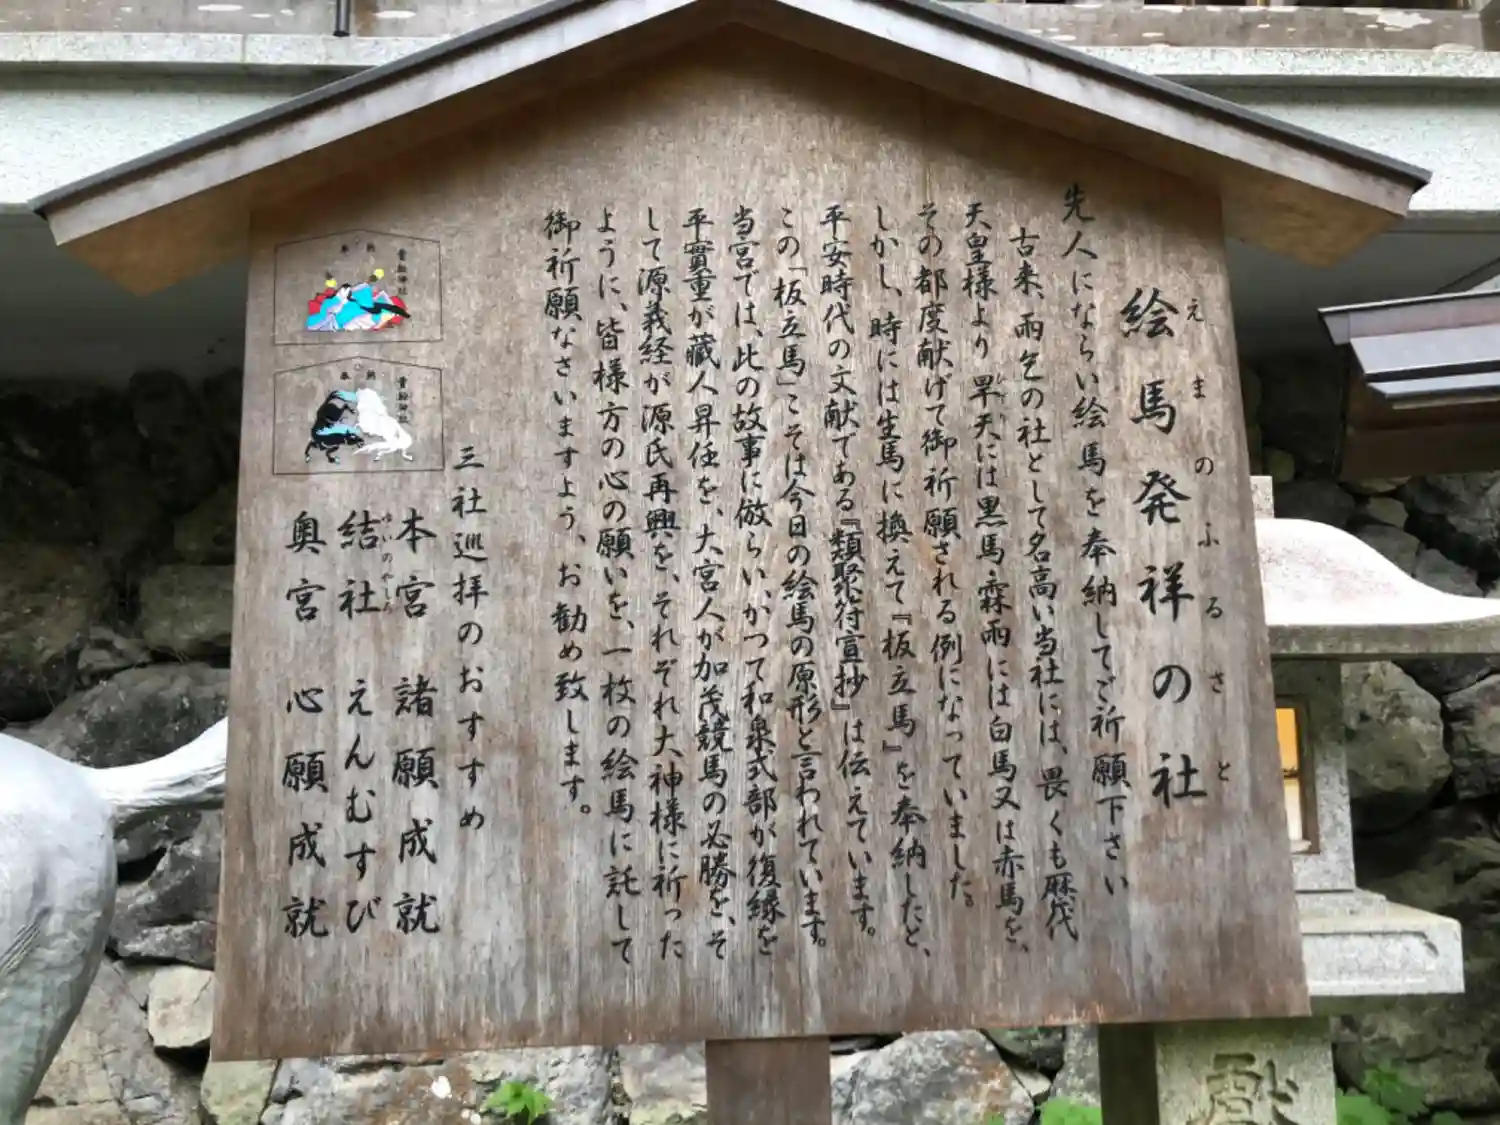 絵馬発祥の社
えまのふるさと
先人にならい絵馬を奉納してご祈願下さい
古来、雨乞の社として名高い当社には、畏くも歴代
天皇様より旱天には黒馬・霖雨には白馬又は赤馬を、
その都度献げて御祈願される例になっていました。
しかし、時には生馬に換えて『板立馬』を奉納したと、
平安時代の文献である『類聚符宣抄』は伝えています。
この「板立馬」こそは今日の絵馬の原形と言われています。
当宮では、此の故事に倣らい、かつて和泉式部が復縁を
平實重が蔵人昇任を、大宮人が加茂競馬の必勝を、そ
して源義経が源氏再興を、それぞれ大神様に祈った
ように、皆様方の心の願いを、一枚の絵馬に託して
御祈願なさいますよう、お勧め致します。
三社巡拝のおすすめ
本宮 諸願成就
結社 えんむすび
ゆいのやしろ
奥宮 心願成就
奉納
貴船神社
奉納
貴船神社
献